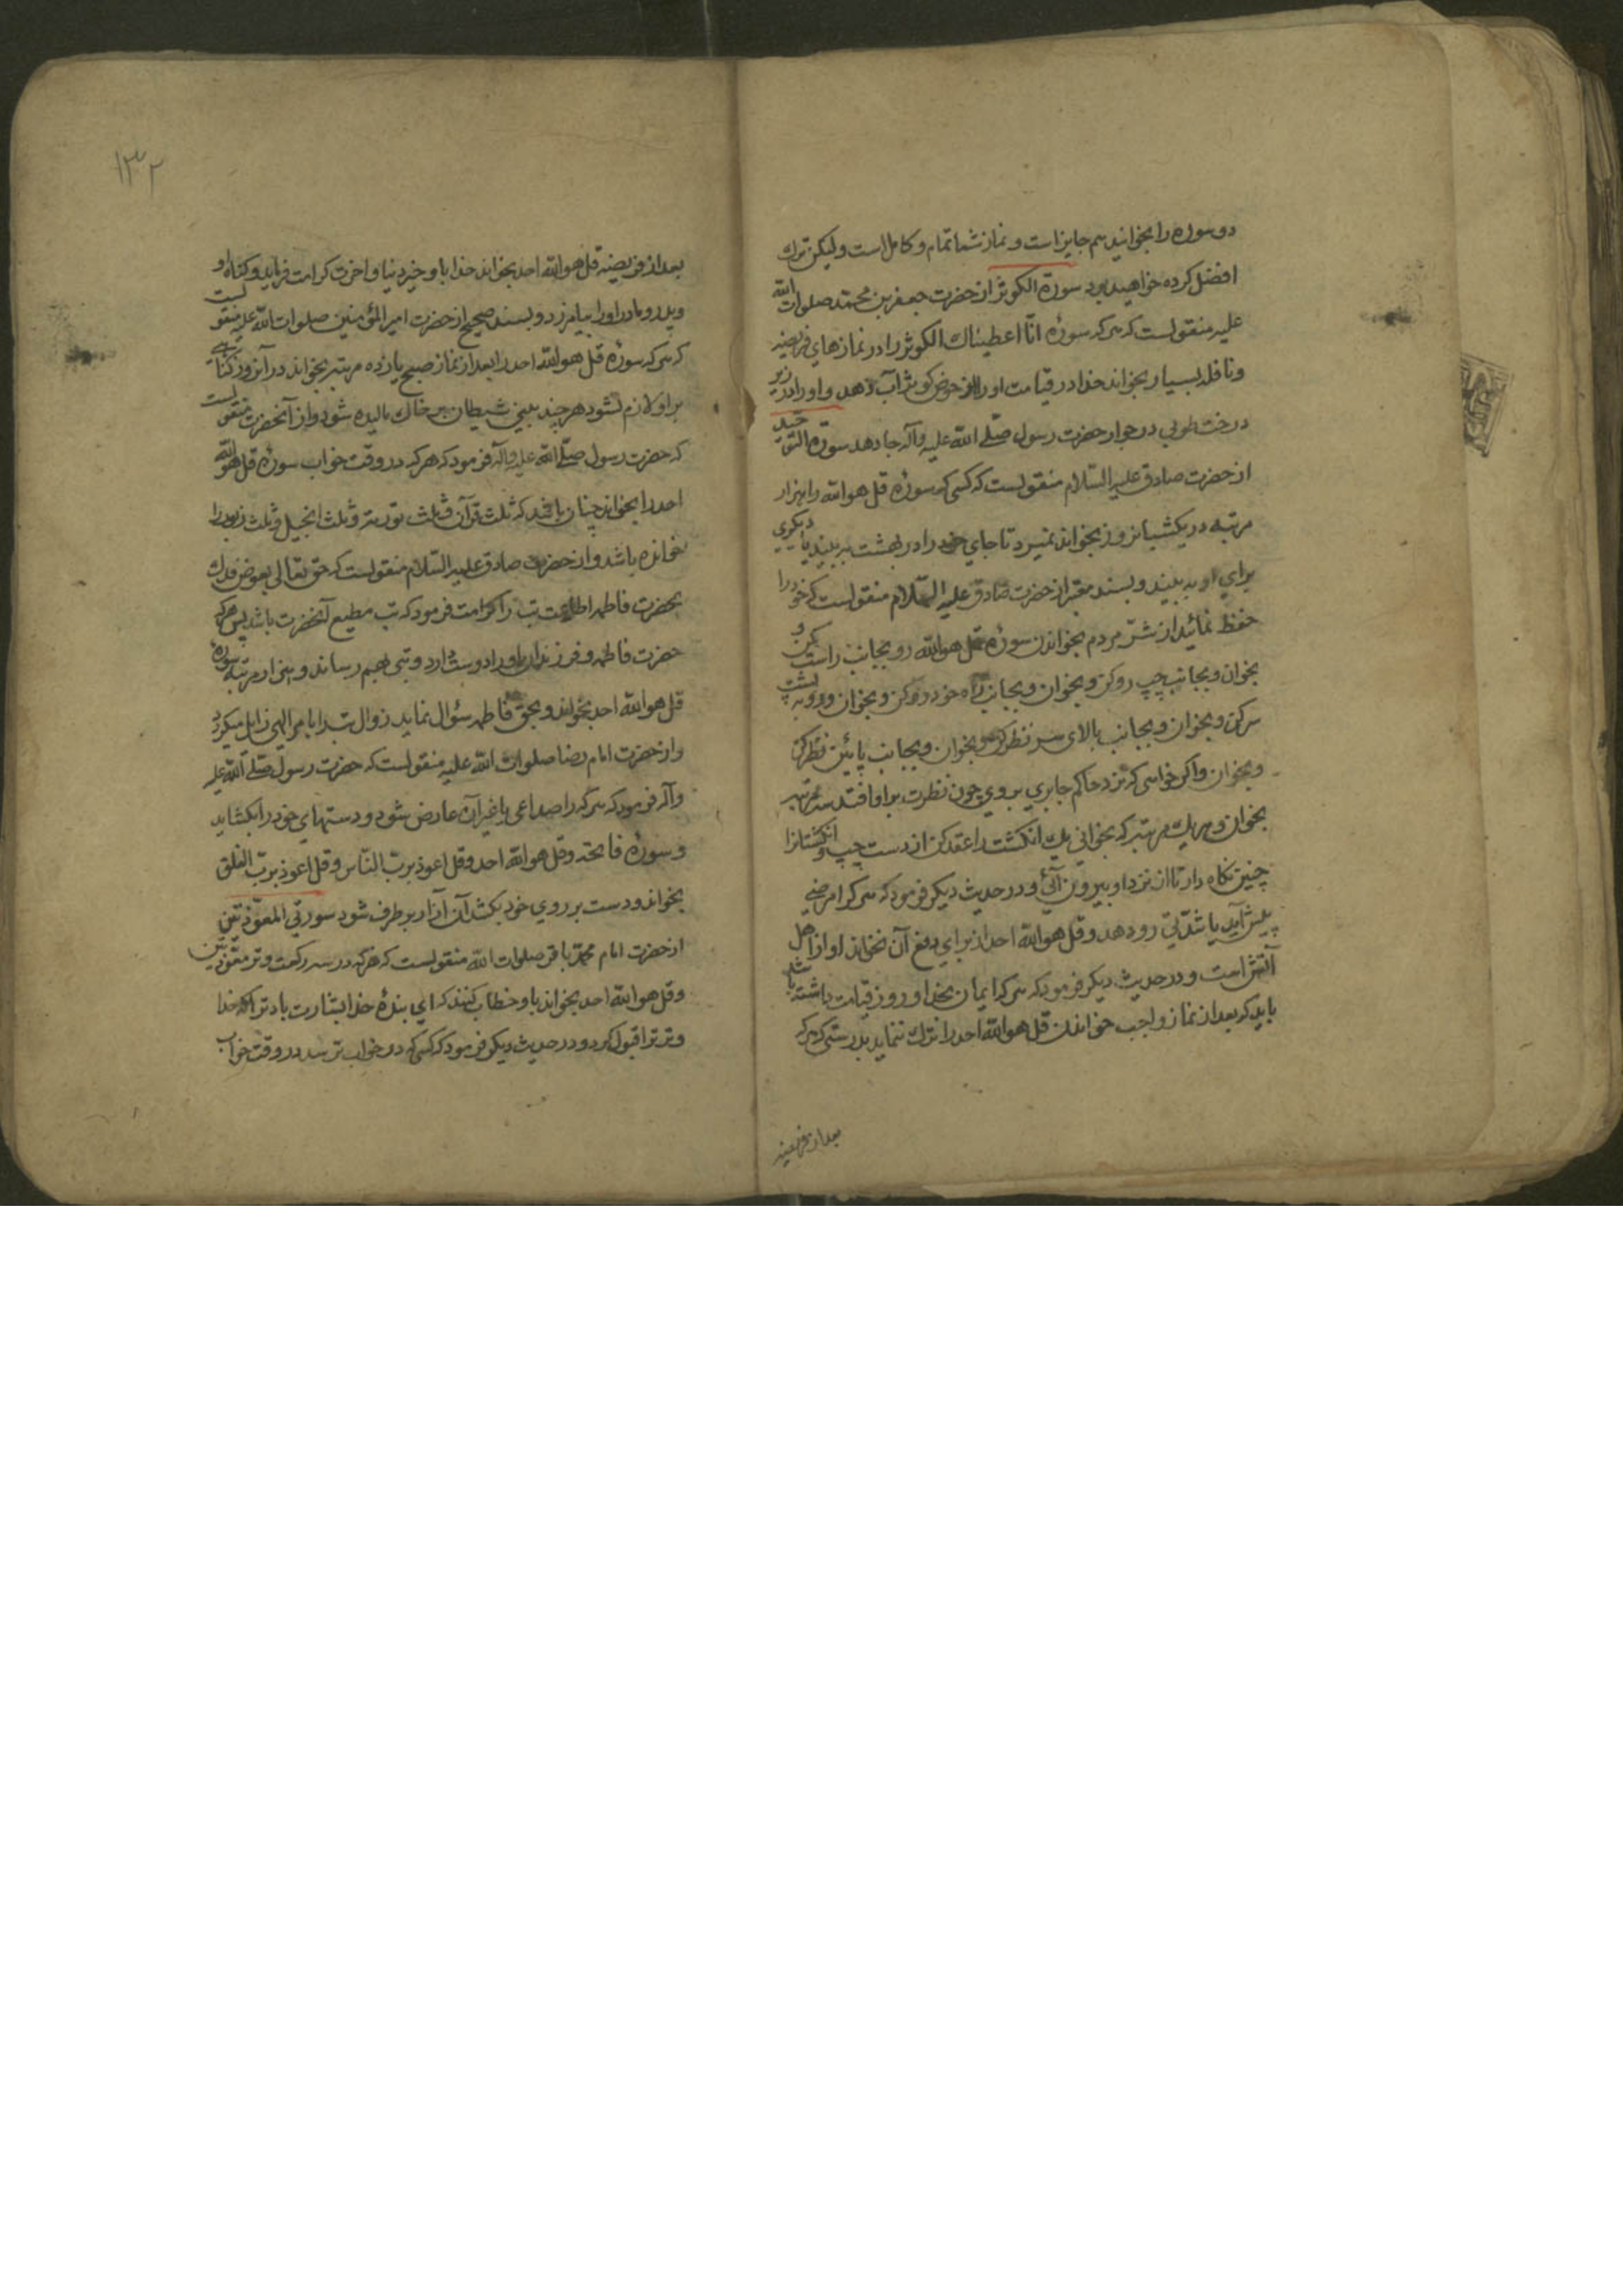 دو سوره را بخوانید هم جایز است و نماز شما تمام و کامل است ولیکن ترك
افضل کرده خواهید بود سورة الکوثر از حضرت جعفر بن محمد صلوات الله
علیه منقولست که هر که سورۀ انّا اعطیناك الکوثر را در نمازهای فریضه
و نافله بسیار بخواند خدا در قیامت او را از حوض کوثر آب دهد و او را در زیر
درخت طوبی در جوار حضرت رسول صلّی الله علیه وآله جا دهد سورة التوحید
از حضرت صادق علیه السّلام منقولست که کسی که سورۀ قل هو الله را هزار
مرتبه در یکشبانروز بخواند نمیرد تا جای خود را در بهشت ببیند یا دیگری
برای او ببیند و بسند معتبر از حضرت صادق علیه السّلام منقولست که خود را
حفظ نمائید از شرّ مردم بخواندن سورۀ قل هو الله رو بجانب راست کن و
بخوان و بجانب چپ رو کن و بخوان و بجانب راه خود رو کن و بخوان و رو به پشت
سر کن و بخوان و بجانب بالای سر نظر کن و بخوان و بجانب پائین نظر کن
و بخوان و اگر خواهی که نزد حاکم جابری بروی چون نظرت بر او افتد سه مرتبه
بخوان و هر یك مرتبه که بخوانی یك انگشت را عقد کن از دست چپ و انگشتانرا
چنین نگاه دار تا از نزد او بیرون آئی و در حدیث دیگر فرمود که هر که را مرضی
پیش آید یا شدّتی رو دهد و قل هو الله احد از برای دفع آن نخواند او از اهل
آتش است و در حدیث دیگر فرمود که هر که ایمان بخدا و روز قیامت داشته باشد
باید که بعد از نماز واجب خواندن قل هو الله احد را ترك ننماید بدرستی که هر که
بعد از فریضه
۱۳۲
بعد از فریضه قل هو الله احد بخواند خدا باو خیر دنیا و اخرت کرامت فرماید و گناه او
و پدر و مادر او را بیامرزد و بسند صحیح از حضرت امیر المؤمنین صلوات الله علیه منقولست
که هر که سورۀ قل هو الله احد را بعد از نماز صبح یازده مرتبه بخواند در آنروز گناهی
بر او لازم نشود هر چند بینی شیطان بر خاك مالیده شود و از آنحضرت منقولست
که حضرت رسول صلّی الله علیه وآله فرمود که هر که در وقت خواب سورۀ قل هو الله
احد را بخواند چنان باشد که ثلث قرآن و ثلث توریة و ثلث انجیل و ثلث زبور را
خوانده باشد و از حضرت صادق علیه السّلام منقولست که حق تعالی بعوض فدك
بحضرت فاطمه اطاعت تب را کرامت فرمود که تب مطیع آنحضرت باشد پس هر که
حضرت فاطمه و فرزندان او را دوست دارد و تبی بهم رساند و هزار مرتبه سورۀ
قل هو الله احد بخواند و بحق فاطمه سؤال نماید زوال تب را بامر الهی زایل میگردد
و از حضرت امام رضا صلوات الله علیه منقولست که حضرت رسول صلّی الله علیه
وآله فرمود که هر که را صداعی یا غیر آن عارض شود و دستهای خود را بگشاید
و سورۀ فاتحه و قل هو الله احد و قل اعوذ بربّ النّاس و قل اعوذ بربّ الفلق
بخواند و دست بر روی خود بکشد آن آزار بر طرف شود سورتی المعوّذتین
از حضرت امام محمّد باقر صلوات الله منقولست که هر که در سه رکعت وتر معوّذتین
و قل هو الله احد بخواند باو خطاب کنند که ای بندۀ خدا بشارت باد ترا که خدا
وتر ترا قبول کرد و در حدیث دیگر فرمود که کسی که در خواب ترسد در وقت خواب